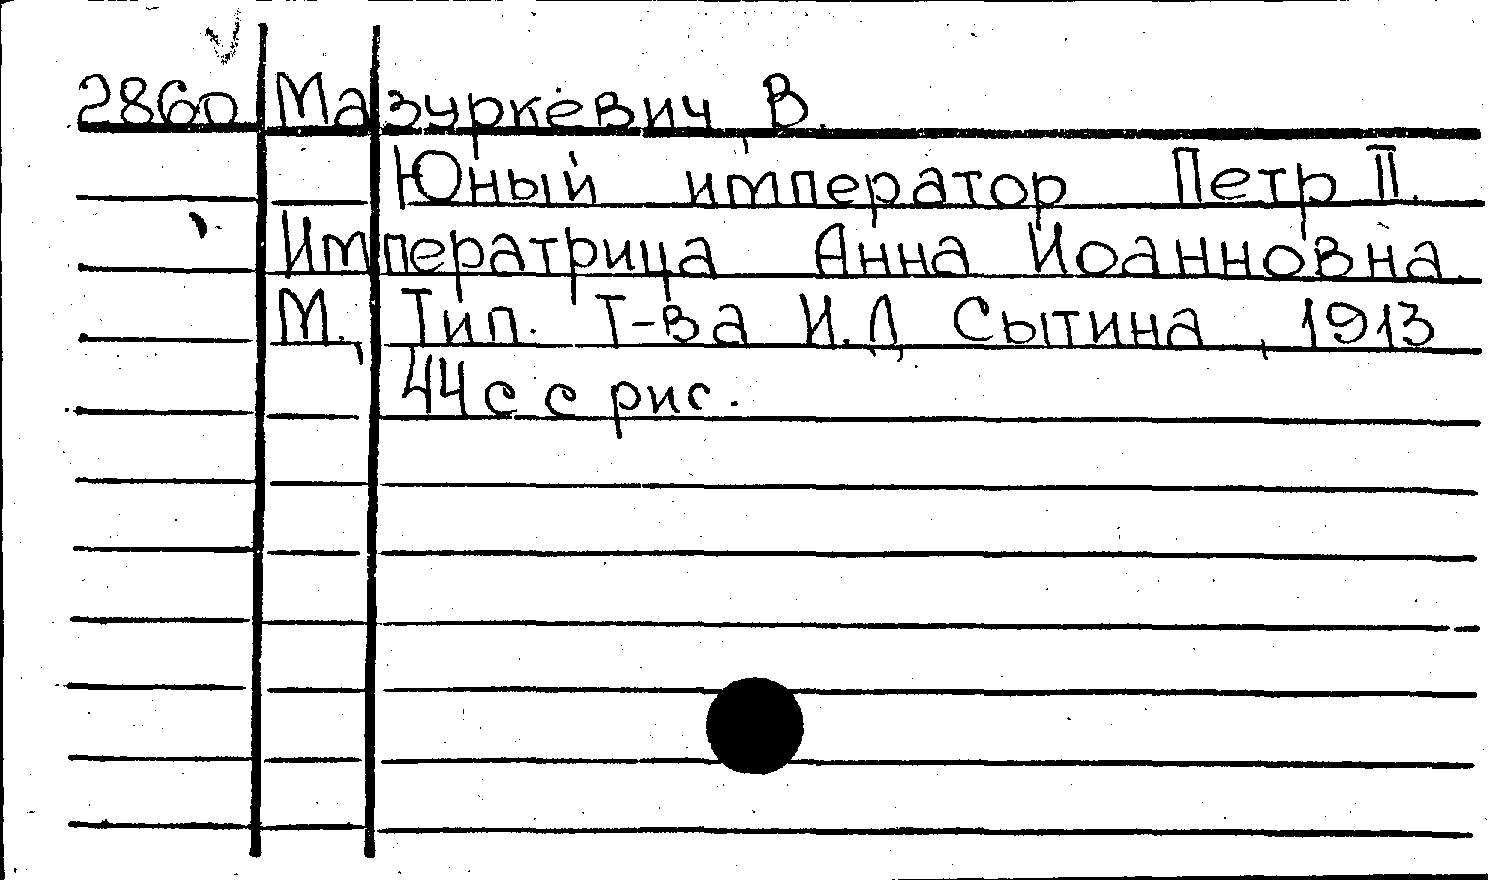 2860 Мазуркевич В.
Юный император Петр II.
Императрица Анна Иоанновна.
М., Тип. Т-ва И.Д. Сытина, 1913
44 с с рис.